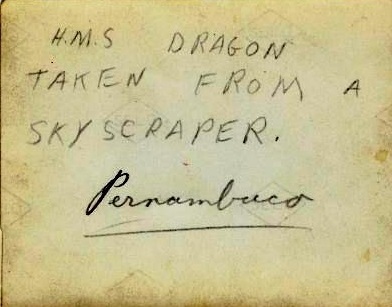 H.M.S DRAGON
TAKEN FROM A
SKYSCRAPER.
Pernambuco